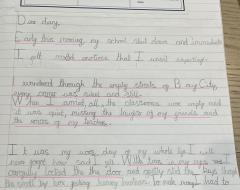 Dear diary,
Early this morning my school shut down and immediately
I got mixed emotions that I wasn't expecting.
I wandered through the empty streets of B my City,
every corner was silent and still.
When I arrived, all the classrooms were empty and
it was quiet, missing the laughter of my friends and
the voices of my teachers.
It was my worst day of my whole life I will
never forget how sad I felt. With tears in my eyes
carefully locked the door and softly slid the keys though
the small